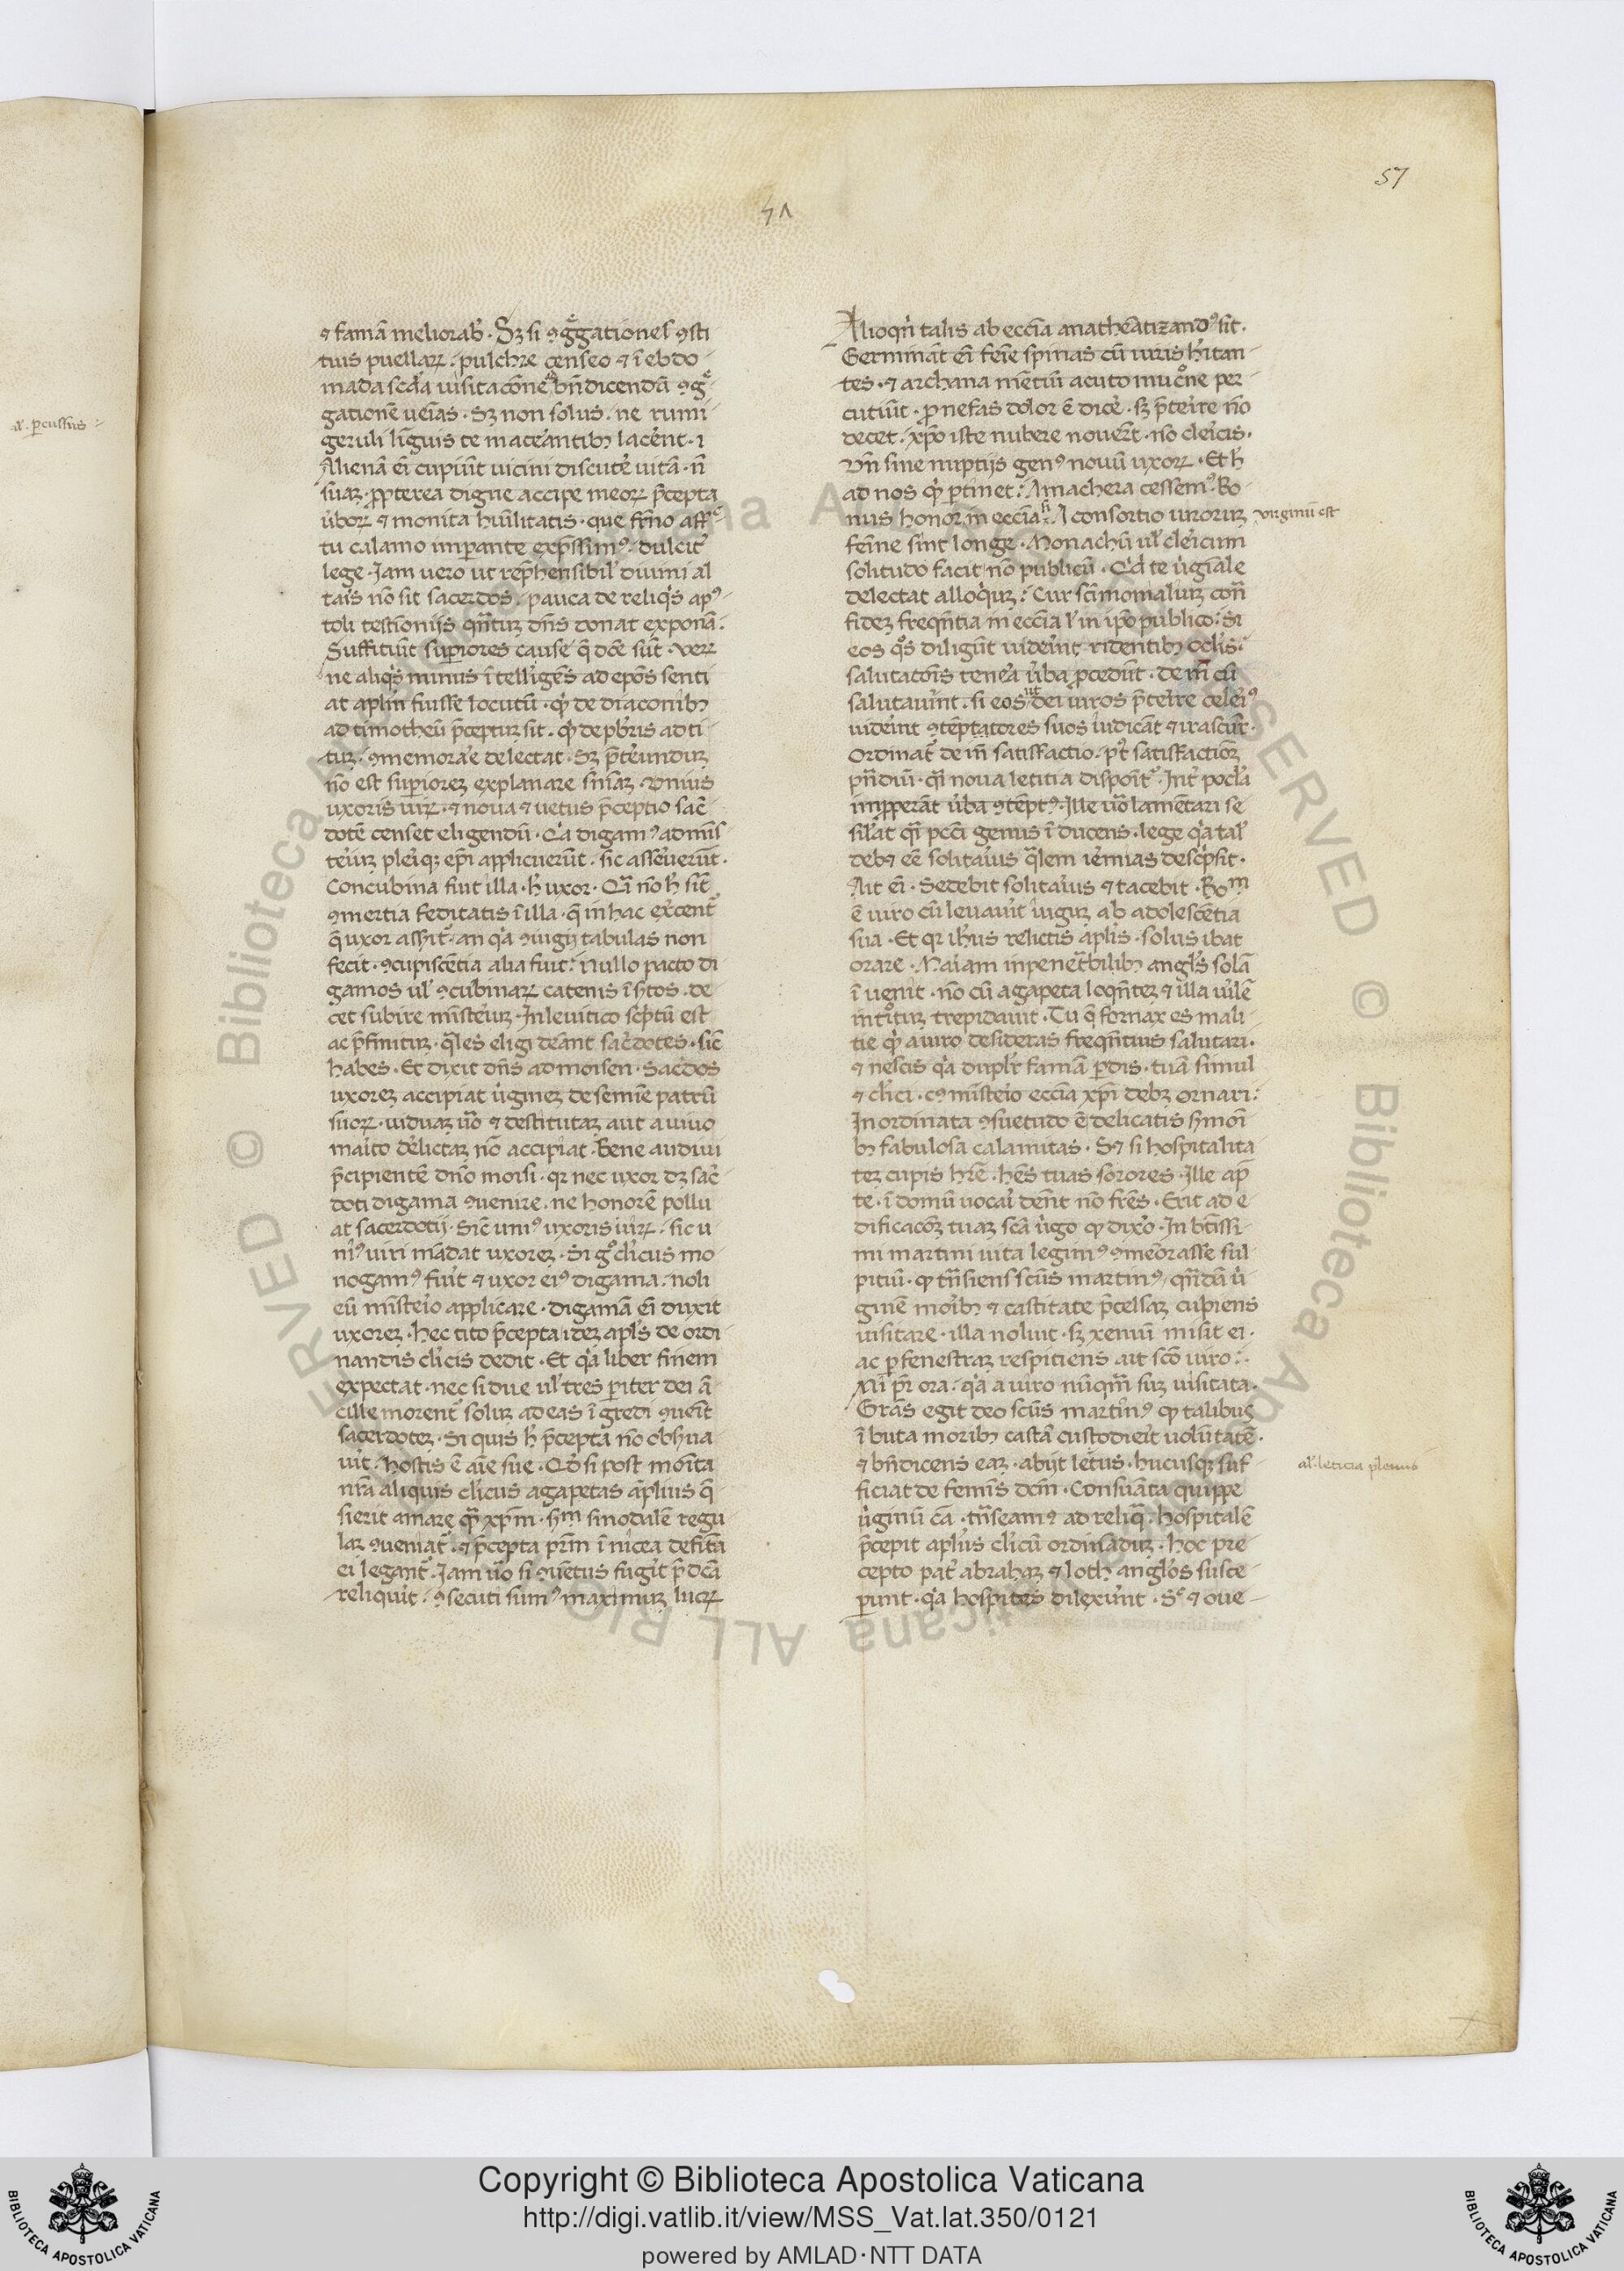 57
51
al. ꝑcussus
⁊ famā meliorab̉. Sꝫ si ꝯgͤgationeſ ꝯsti
tuis puellaꝝ. pulchre censeo ⁊ ī ebdo
mada scd̉a uisitacōne bn̄dicendā ꝯgͤ
gationē ueīas. Sꝫ non solus. ne rumi
geruli līguis te macẻantibꝫ lacẻnt.
Alienā ei cupiūt uicini discutẻ uitā. n̄
suaꝫ. ꝓpterea digne accipe meoꝝ p̄cepta
ủboꝝ ⁊ monita hūilitatis. que fr̄no affͤ
tu calamo impante exp̄ssimꝰ. dulcit̉
lege. Jam uero ut rep̄hensibil̉ diuini al
taīs nō sit sacerdos. pauca de reliq̉s apꝰ
toli testīoniis qn̄tuꝫ dn̄s donat exponā.
Suffitiūt supiores cause q̄ dc̄e sūt. Veꝝ
ne aliq̉s minus ī telligēs ad ep̄os senti
at apl̄m fuisse locutū. qd̉ de diaconibꝫ
ad timotheū p̄ceptuꝫ sit. qd̉ de pb̄ris ad ti
tuꝫ. ꝯmemorảe delectat. Sꝫ p̄tẻunduꝫ
nō est supioreꝫ explanare sn̄iaꝫ. Vnius
uxoris uiꝝ. ⁊ noua ⁊ uetus p̄ceptio sac̄
dotē censet eligendū. Qả digamꝰ ad mīs
tẻiuꝫ plẻiqꝫ ep̄i applicuerūt. sic assẻuerūt.
Concubina fuit illa. h̉ uxor. Qā nō h̉ sit̄
ꝯmertia feditatis ī illa. q̄ in hac ex̉cent̉
q̄ uxor assit̉. an q̉a ꝯiugij tabulas non
fecit. ꝯcupiscētia alia fuit. Nullo pacto di
gamos ul̉ ꝯcubinaꝝ catenis īh̉tos. de
cet subire mīstẻiuꝫ. In leuitico sc̉ptū est
ac p̄finituꝫ. q̄les eligi dēant sac̉dotes. sic̄
habes. Et dixit dn̄s ad moisen. Sac̉dos
uxoreꝫ accipiat ủgineꝫ de semīe patrū
suoꝝ. uiduaꝫ ủo ⁊ destitutaꝫ aut a uiuo
maīto dẻlictaꝫ nō accipiat. Bene audiui
p̄cipientē dn̄o moisi. qꝛ nec uxor dꝫ sac̉
doti digama ꝯuenire. ne honorē pollu
at sacerdotij. Sic̄ unꝰ uxoris uiꝝ. sic u
niꝰ uiri mādat uxoreꝫ. Si gͦ cl̉icus mo
nogamꝰ fuīt ⁊ uxor eiꝰ digama. noli
eū mīstẻio applicare. digamā ei duxit
uxoreꝫ. hec tito p̄cepta ideꝫ apl̄s de ordi
nandis cl̉icis dedit. Et q̉a liber finem
expectat. nec si due ul̉ tres ꝑiter dei ā
cille morent̉ soluꝫ ad eas ī gredi ꝯueīt
sacerdoteꝫ. Si quis h̉ p̄cepta nō obs̉ua
uīt. hostis ē aīe sue. Qd̉ si post mōita
nr̄a aliquis cl̉icus agapetas āplius q̄
sierit amare q̄ꝫ xp̄m. s̄m sinodalē regu
laꝫ ꝯueniat̉. ⁊ p̄cepta pr̄m ī nicea defīita
ei legant̉. Jam ủo si ꝯuētus fugīt p̄dc̄a
reliquīt. ꝯsecuti sumꝰ maximuꝫ lucꝝ
Alioqn̉ talis ab eccīa anathēatizandꝰ sit̄.
Germināt eī feīe spinas cū uiris h̉itan
tes. ⁊ archana mētiū acuto mucͦne per
cutiūt. ꝓ nefas dolor ē dicẻ. sꝫ p̄tẻire nō
decet. xp̄o iste nubere nouer̄t. nō clẻicis.
Vn̄ sine nuptijs genꝰ nouū uxoꝝ. Et h̉
ad nos qd̉ ꝑtinet. A machera cessemꝰ. Bo
nus honor in eccīa. A consortio uiroruꝫ
virginū est
feīne sint longe. Monachū ul̉ clẻicum
solitudo facit nō publicū. Qd̉ te ủginale
delectat alloq̉uꝫ. Cur sc̄imonialiuꝫ con̄
fideꝫ freqn̄tia in eccīa l̉ in ip̄o publico. Si
eos qͦs diligūt uidẻint ridentibꝫ ocl̉is.
salutatōis tenẻa ủba ꝓcedūt. de īn̄ cū
salutauīnt. si eos ut dei uiros p̄tẻire celẻiꝰ
uidẻint ꝯtēptatores suos iudicāt ⁊ irascūt̉.
Ordinat̉ de in̄ satisfactio. pͭ satisfactiōꝫ
pn̄diū. qͣi noua letitia dispoīt̉. Int̉ pocl̉a
imꝓperāt ủba ꝯtēptꝰ. Ille ủo lamētari se
sil̉at qͣi pcc̄i genus ī ducens. lege q̉a tal̉
debꝫ eē solitảius q̄lem iẻmias desc̉psit.
Ait eī. Sedebit solitảius ⁊ tacebit. Bom̄
ē uiro cū leuauīt iuguꝫ ab adolescētia
sua. Et qꝛ ih̄us relictis apl̄is. solus ibat
orare. Mảiam inpenet̉bilibꝫ angl̉s solā
ī uenit. nō cū agapeta loqn̄teꝫ ⁊ illa uil̉e
intͦituꝫ trepidauit. Tu q̄ fornax es mali
tie qd̉ a uiro desideras freqn̄tius salutari.
⁊ nescis q̉a dupl̉r famam ꝑdis. tuā simul
⁊ cl̉ici. cꝰ mīstẻio eccīa xp̄i debꝫ ornari.
Inordinata ꝯsuetudo ē delicatis s̉moī
bꝫ fabulosa calamitas. Sꝫ si hospitalita
teꝫ cupis hr̄e. hēs tuas sorores. Ille ap̄
te. ī domū uocaī dēnt nō fr̄es. Erit ad e
dificacōꝫ tuaꝫ sc̄a ủgo qꝫ dixͦ. In bt̄issi
mi martini uita legimꝰ ꝯmeōrasse sul
pitiū. qꝫ tn̄siens sc̄us martinꝰ qn̄dā ủ
ginē moībꝫ ⁊ castitate p̄celsaꝫ cupiens
uisitare. illa noluit. sꝫ xeniū misit ei.
ac ꝑ fenestraꝫ respitiens ait sc̄o uiro.
Xi pr̄ ora. q̉a a uiro nūqm̄ suꝫ uisitata.
Grās egit deo sc̄us martinꝰ qꝫ talibus
ībuta moribꝫ castā custodiẻit uolūtatē.
⁊ bn̄dicens eaꝫ. abijt letus. hucusqꝫ suf
al. letitia plenus
ficiat de femīs dc̄m. Consūata quippe
ủginū cā. tn̄seamꝰ ad reliq̄. hospitalē
p̄cepit apl̄us cl̉icū ordināduꝫ. hoc pre
cepto pat̉ abrahaꝫ ⁊ loth angl̉os susce
ꝑunt. q̉a hospites dilexūt. Sꝫ ⁊ oue
Copyright © Biblioteca Apostolica Vaticana
http://digi.vatlib.it/view/MSS_Vat.lat.350/0121
powered by AMLAD·NTT DATA